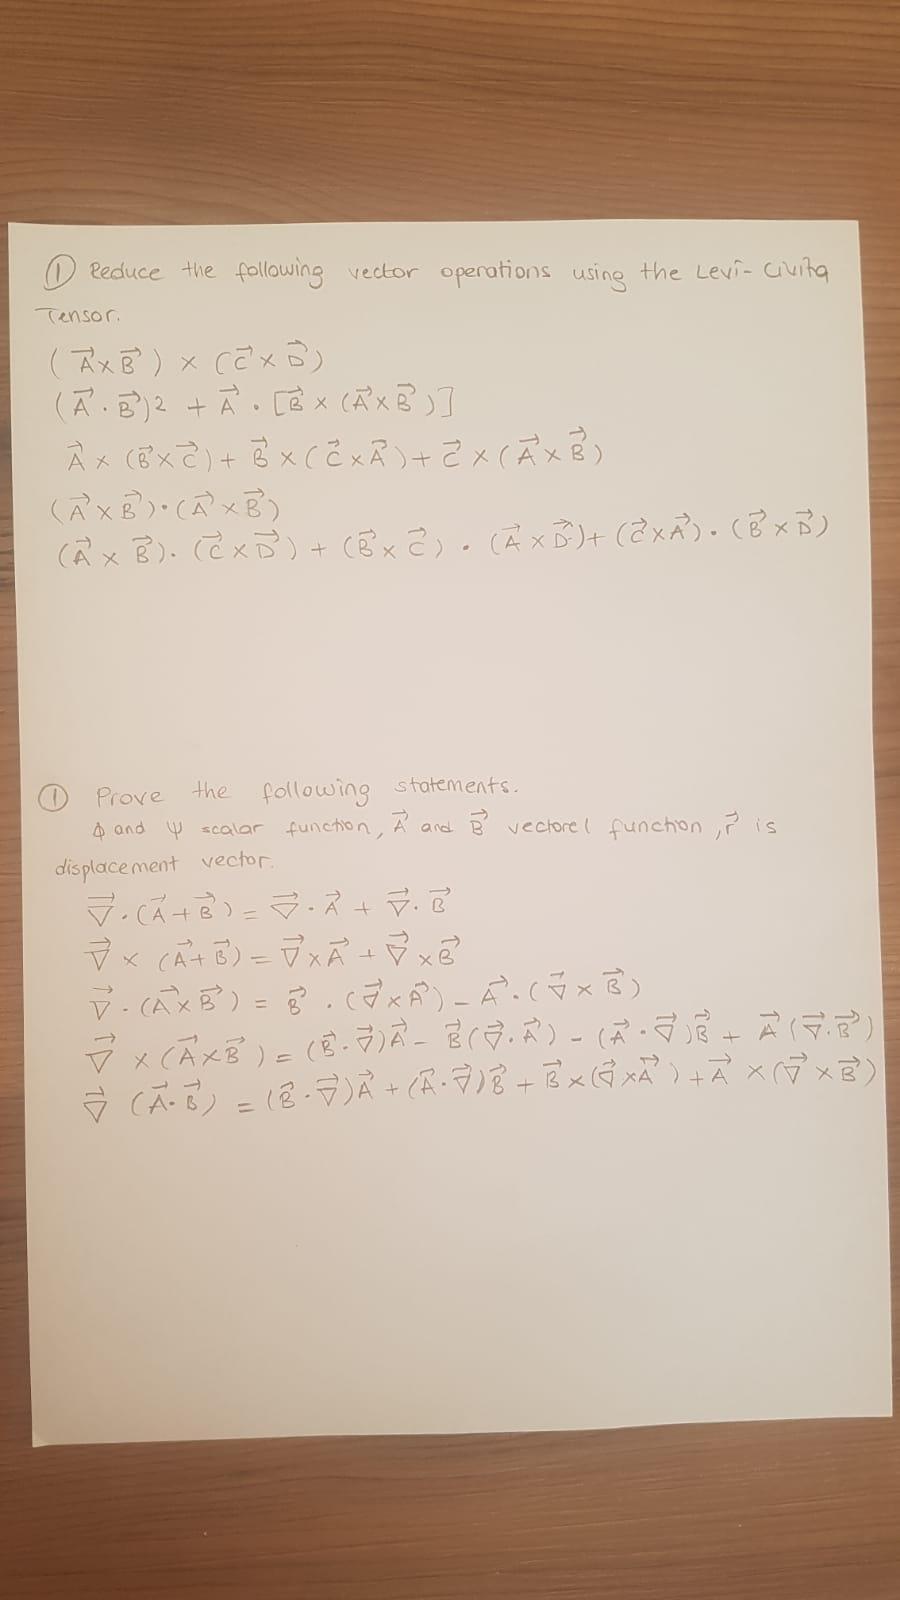 ① Reduce the following vector operations using the Levi-Civita
Tensor.
(A⃗ × B⃗) × (C⃗ × D⃗)
(A⃗ · B⃗)² + A⃗ · [B⃗ × (A⃗ × B⃗)]
A⃗ × (B⃗ × C⃗) + B⃗ × (C⃗ × A⃗) + C⃗ × (A⃗ × B⃗)
(A⃗ × B⃗) · (A⃗ × B⃗)
(A⃗ × B⃗) · (C⃗ × D⃗) + (B⃗ × C⃗) · (A⃗ × D⃗) + (C⃗ × A⃗) · (B⃗ × D⃗)
① Prove the following statements.
ϕ and ψ scalar function, A⃗ and B⃗ vectorel function, r⃗ is
displacement vector.
∇⃗ · (A⃗ + B⃗) = ∇⃗ · A⃗ + ∇⃗ · B⃗
∇⃗ × (A⃗ + B⃗) = ∇⃗ × A⃗ + ∇⃗ × B⃗
∇⃗ · (A⃗ × B⃗) = B⃗ · (∇⃗ × A⃗) - A⃗ · (∇⃗ × B⃗)
∇⃗ × (A⃗ × B⃗) = (B⃗ · ∇⃗)A⃗ - B⃗(∇⃗ · A⃗) - (A⃗ · ∇⃗)B⃗ + A⃗(∇⃗ · B⃗)
∇⃗ (A⃗ · B⃗) = (B⃗ · ∇⃗)A⃗ + (A⃗ · ∇⃗)B⃗ + B⃗ × (∇⃗ × A⃗) + A⃗ × (∇⃗ × B⃗)